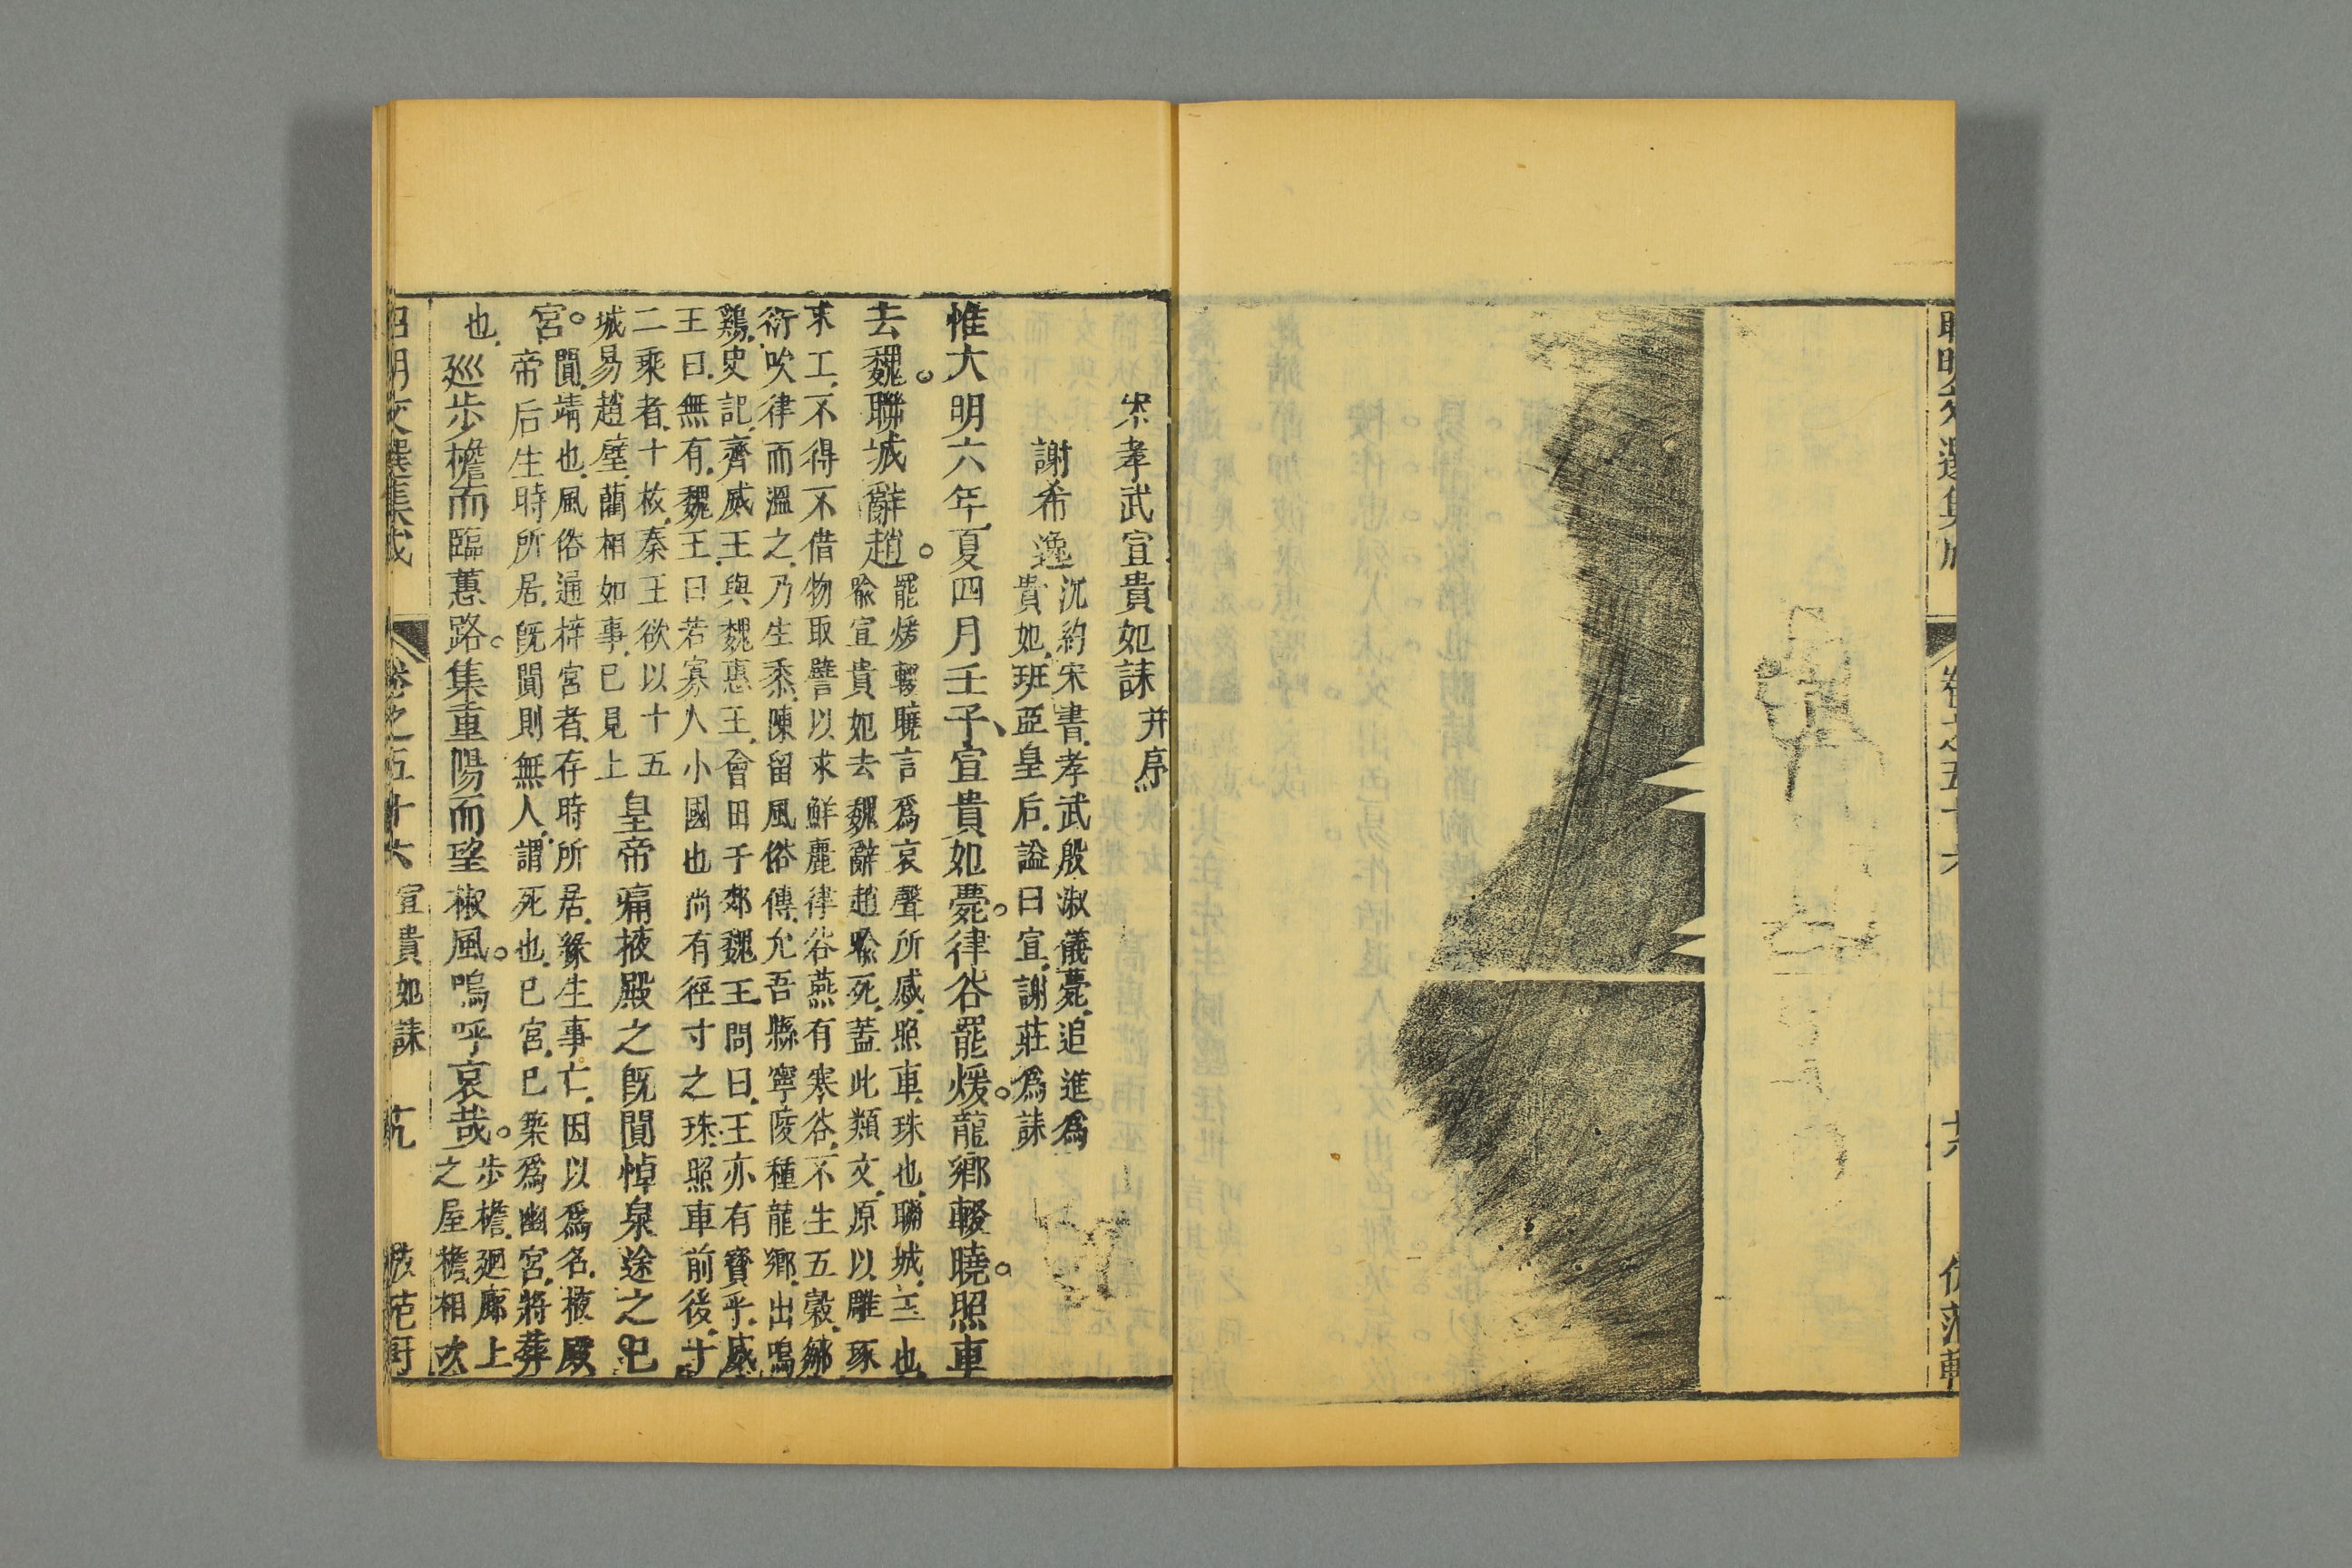 昭明文選集成 卷之五十六 十六 仿范軒
宋孝武宣貴妃誄 并序
謝希逸
沈約宋書孝武殷淑儀薨追進爲
貴妃班亞皇后諡曰宣謝莊爲誄
惟大明六年夏四月壬子宣貴妃薨律谷罷煖龍鄉輟曉照車
去魏聯城辭趙
罷煖輟曉言爲哀聲所感照車珠也聯城玉也
喩宣貴妃去魏辭趙喩死蓋此類文原以雕琢
求工不得不借物取譬以求鮮麗律谷燕有寒谷不生五穀鄒
衍吹律而溫之乃生黍陳留風俗傳允吾縣寧陵種龍鄉出鳴
鷄史記齊威王與魏惠王會田于郊魏王問曰王亦有寶乎威
王曰無有魏王曰若寡人小國也尚有徑寸之珠照車前後十
二乘者十枚秦王欲以十五
城易趙璧藺相如事已見上
皇帝痛掖殿之旣闃悼泉途之已
宮
闃靖也風俗通梓宮者存時所居緣生事亡因以爲名掖殿
帝后生時所居旣闃則無人謂死也已宮已築爲幽宮將葬
也
巡步櫩而臨蕙路集重陽而望椒風嗚呼哀哉
步櫩廻廊上
之屋櫩相次
昭明文選集成 卷之五十六 宣貴妃誄